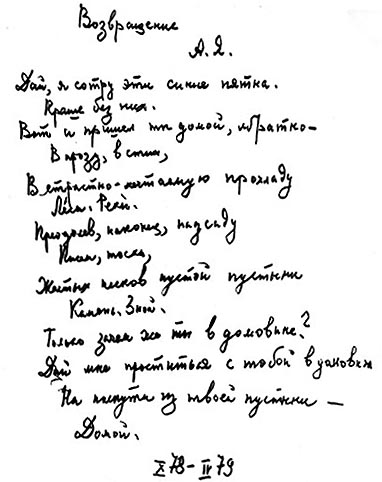 Возвращение
А. Я.
Дай, я сотру эти синие пятна.
Краше без них.
Вот и пришел ты домой, обратно –
В прозу, в стих,
В страстно-читаемую прохладу
Леса. Реки.
Преодолев, наконец, надсаду
Писем, тоски,
Желтых песков пустой пустыни
Камень. Зной.
Только зачем же ты в домовине?
Дай мне проститься с тобой в домовине
На полпути из твоей пустыни —
Домой.
X 78 – IV 79